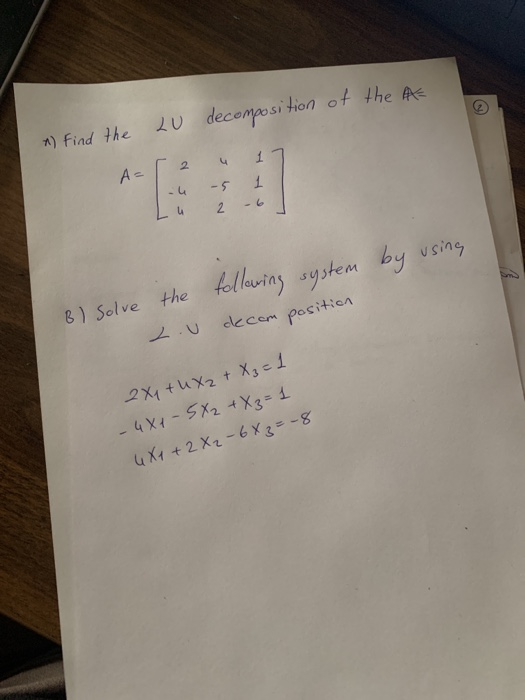 A) Find the LU decomposition of the A
A = [ 2 4 1
-4 -5 1
4 2 -6 ]
B) Solve the following system by using
L.U decomposition
2x1 + 4x2 + x3 = 1
-4x1 - 5x2 + x3 = 1
4x1 + 2x2 - 6x3 = -8
2